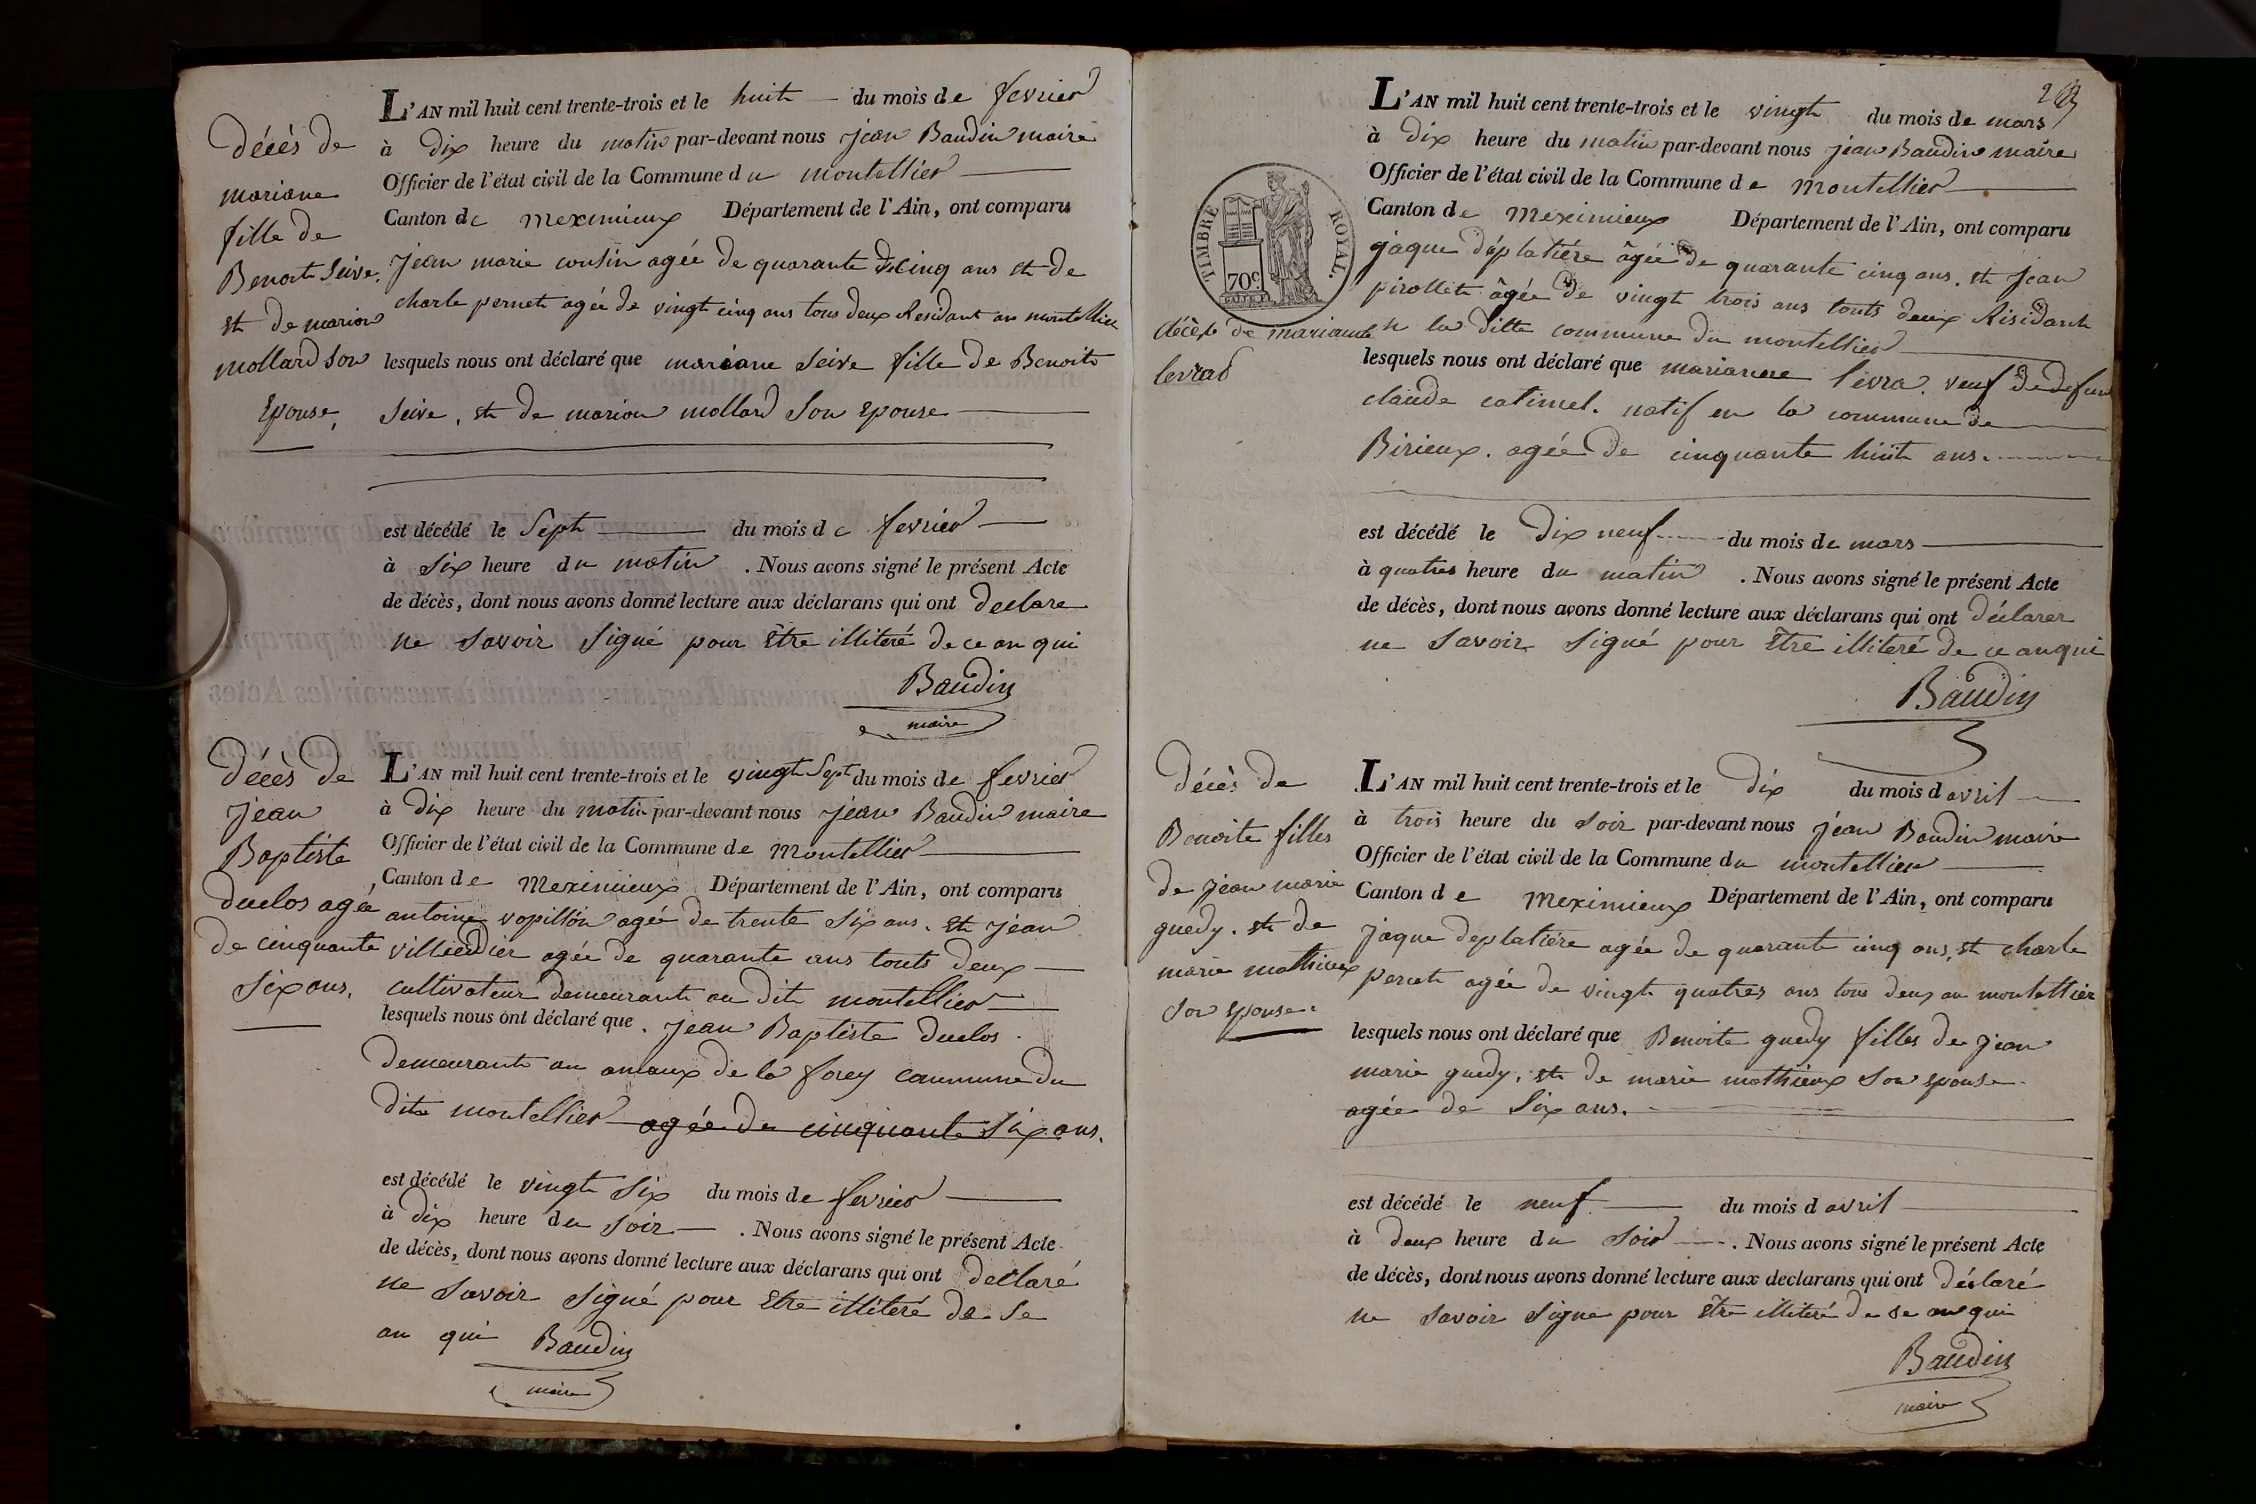 décès de
mariane
fille de
Benoit Seive.
et de marion
mollard son
Epouse,
L'AN mil huit cent trente-trois et le huit du mois de fevrier
à dix heure du matin par-devant nous jean Baudin maire
Officier de l'état civil de la Commune du montellier
Canton de meximieux Département de l'Ain, ont comparu
jean marie cousin agée de quarante cinq ans et de
charle pernet agée de vingt cinq ans tous deux Residant au montellier
lesquels nous ont déclaré que mariane Seive fille de Benoit
Seive, et de marion mollard son epouse
est décédé le Sept du mois de fevrier
à Six heure du matin . Nous avons signé le présent Acte
de décès, dont nous avons donné lecture aux déclarans qui ont declare
ne savoir signé pour Etre illiteré de ce an qui
Baudin
maire
décès de
jean
Baptiste
duclos agée
de cinquante
Six ans.
L'AN mil huit cent trente-trois et le vingt Sept du mois de fevrier
à dix heure du matin par-devant nous jean Baudin maire
Officier de l'état civil de la Commune de montellier
Canton de meximieux Département de l'Ain, ont comparu
antoine vopillon agée de trente Six ans. et jean
agée de quarante ans touts deux
cultivateur demeurant au dit montellier
lesquels nous ont déclaré que. jean Baptiste duclos
demeurant au de la forey commune du
dit montellier agée de cinquante Six ans.
est décédé le vingt Six du mois de fevrier
à dix heure du soir . Nous avons signé le présent Acte
de décès, dont nous avons donné lecture aux déclarans qui ont declaré
ne savoir signé pour Etre illiteré de se
an qui Baudin
maire
TIMBRE ROYAL.
70c
décès de marianne
levrad
L'AN mil huit cent trente-trois et le vingt du mois de mars
à dix heure du matin par-devant nous jean Baudin maire
Officier de l'état civil de la Commune de montellier
Canton de meximieux Département de l'Ain, ont comparu
jaque déplatière âgée de quarante cinq ans. et jean
pirollet âgée de vingt trois ans touts deux Risidant
la ditte commune du montellier
lesquels nous ont déclaré que marianne levra. veuf de defunt
claude catimel. natif en la commune de
Birieux. agée de cinquante huit ans.
est décédé le dix neuf du mois de mars
à quatres heure du matin . Nous avons signé le présent Acte
de décès, dont nous avons donné lecture aux déclarans qui ont déclarer
ne savoir signé pour Etre illiteré de ce an qui
Baudin
décès de
Benoite filles
de jean marie
guedy. et de
marie mathieux
son epouse.
L'AN mil huit cent trente-trois et le dix du mois d avril
à trois heure du soir par-devant nous jean Baudin maire
Officier de l'état civil de la Commune du montellier
Canton de meximieux Département de l'Ain, ont comparu
jaque deplatière agée de quarante cinq ans, et charle
pernet agée de vingt quatres ans tous deux au montellier
lesquels nous ont déclaré que Benoite guedy filles de jean
marie guedy, et de marie mathieux son epouse.
agée de Six ans.
est décédé le neuf du mois d avril
à deux heure du soir . Nous avons signé le présent Acte
de décès, dont nous avons donné lecture aux declarans qui ont déclaré
ne savoir signe pour être illiteré de se an qui
Baudin
maire